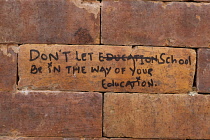 DON'T LET EDUCATION School
BE IN THE WAY OF YOUR
EDUCATION.